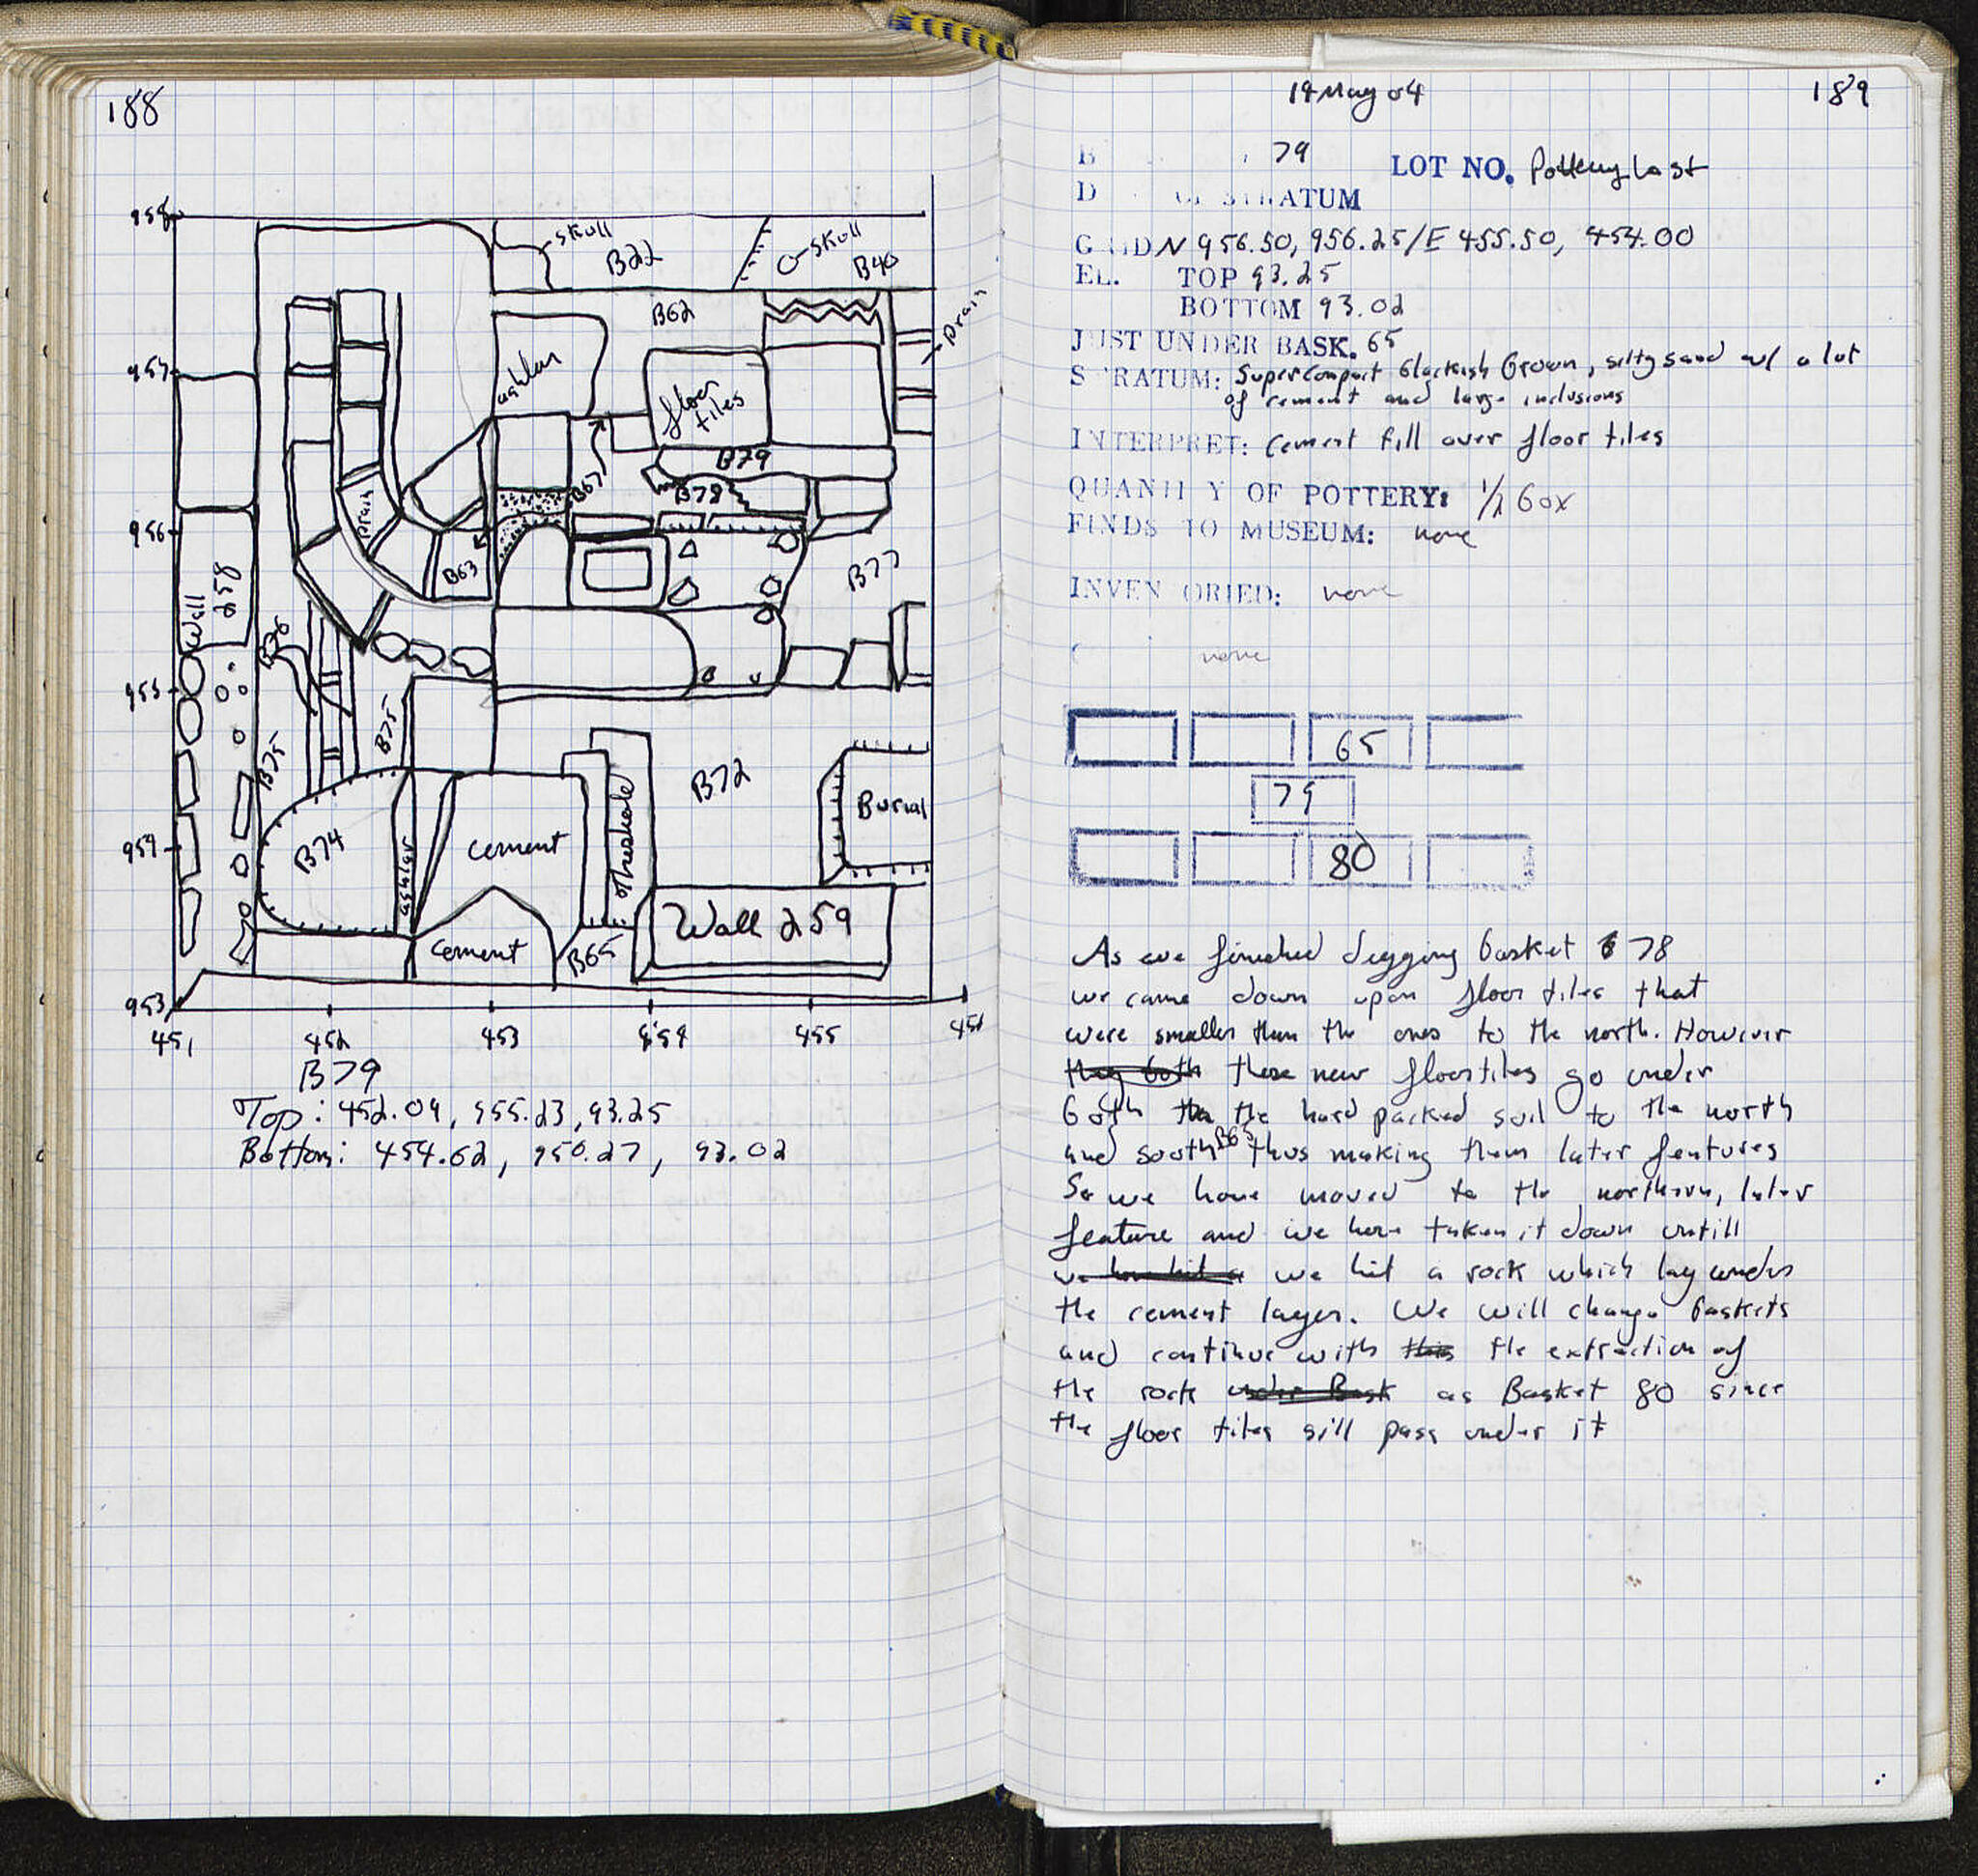 188
958
skull
B22
skull
B40
B62
Drain
957
ashlar
floor
tiles
B79
B67
B78
drain
956
B63
B77
Wall
258
B76
955
B75
B75
B72
Burial
Threshole
cement
B74
ashlar
959
Wall 259
cement
B65
953
451
452
453
454
455
456
B79
Top: 452.04, 955.23, 93.25
Bottom: 454.62, 956.27, 93.02
19 May 04
189
B 79
LOT NO. Pottery Lost
D STRATUM
GRID N 956.50, 956.25/E 455.50, 454.00
EL. TOP 93.25
BOTTOM 93.02
JUST UNDER BASK. 65
STRATUM: Super compact blackish brown, silty sand w/ a lot
of cement and large inclusions
INTERPRET: cement fill over floor tiles
QUANTITY OF POTTERY: 1/2 box
FINDS TO MUSEUM: none
INVENTORIED: none
none
65
79
80
As we finished digging basket 78
we came down upon floor tiles that
were smaller than the ones to the north. However
they both these new floor tiles go under
both the the hard packed soil to the north
and south B65 thus making them later features
So we have moved to the northern, later
feature and we have taken it down untill
we have hit a we hit a rock which lay under
the cement layer. We will change baskets
and continue with this the extraction of
the rock under Bask as Basket 80 since
the floor tiles sill pass under it